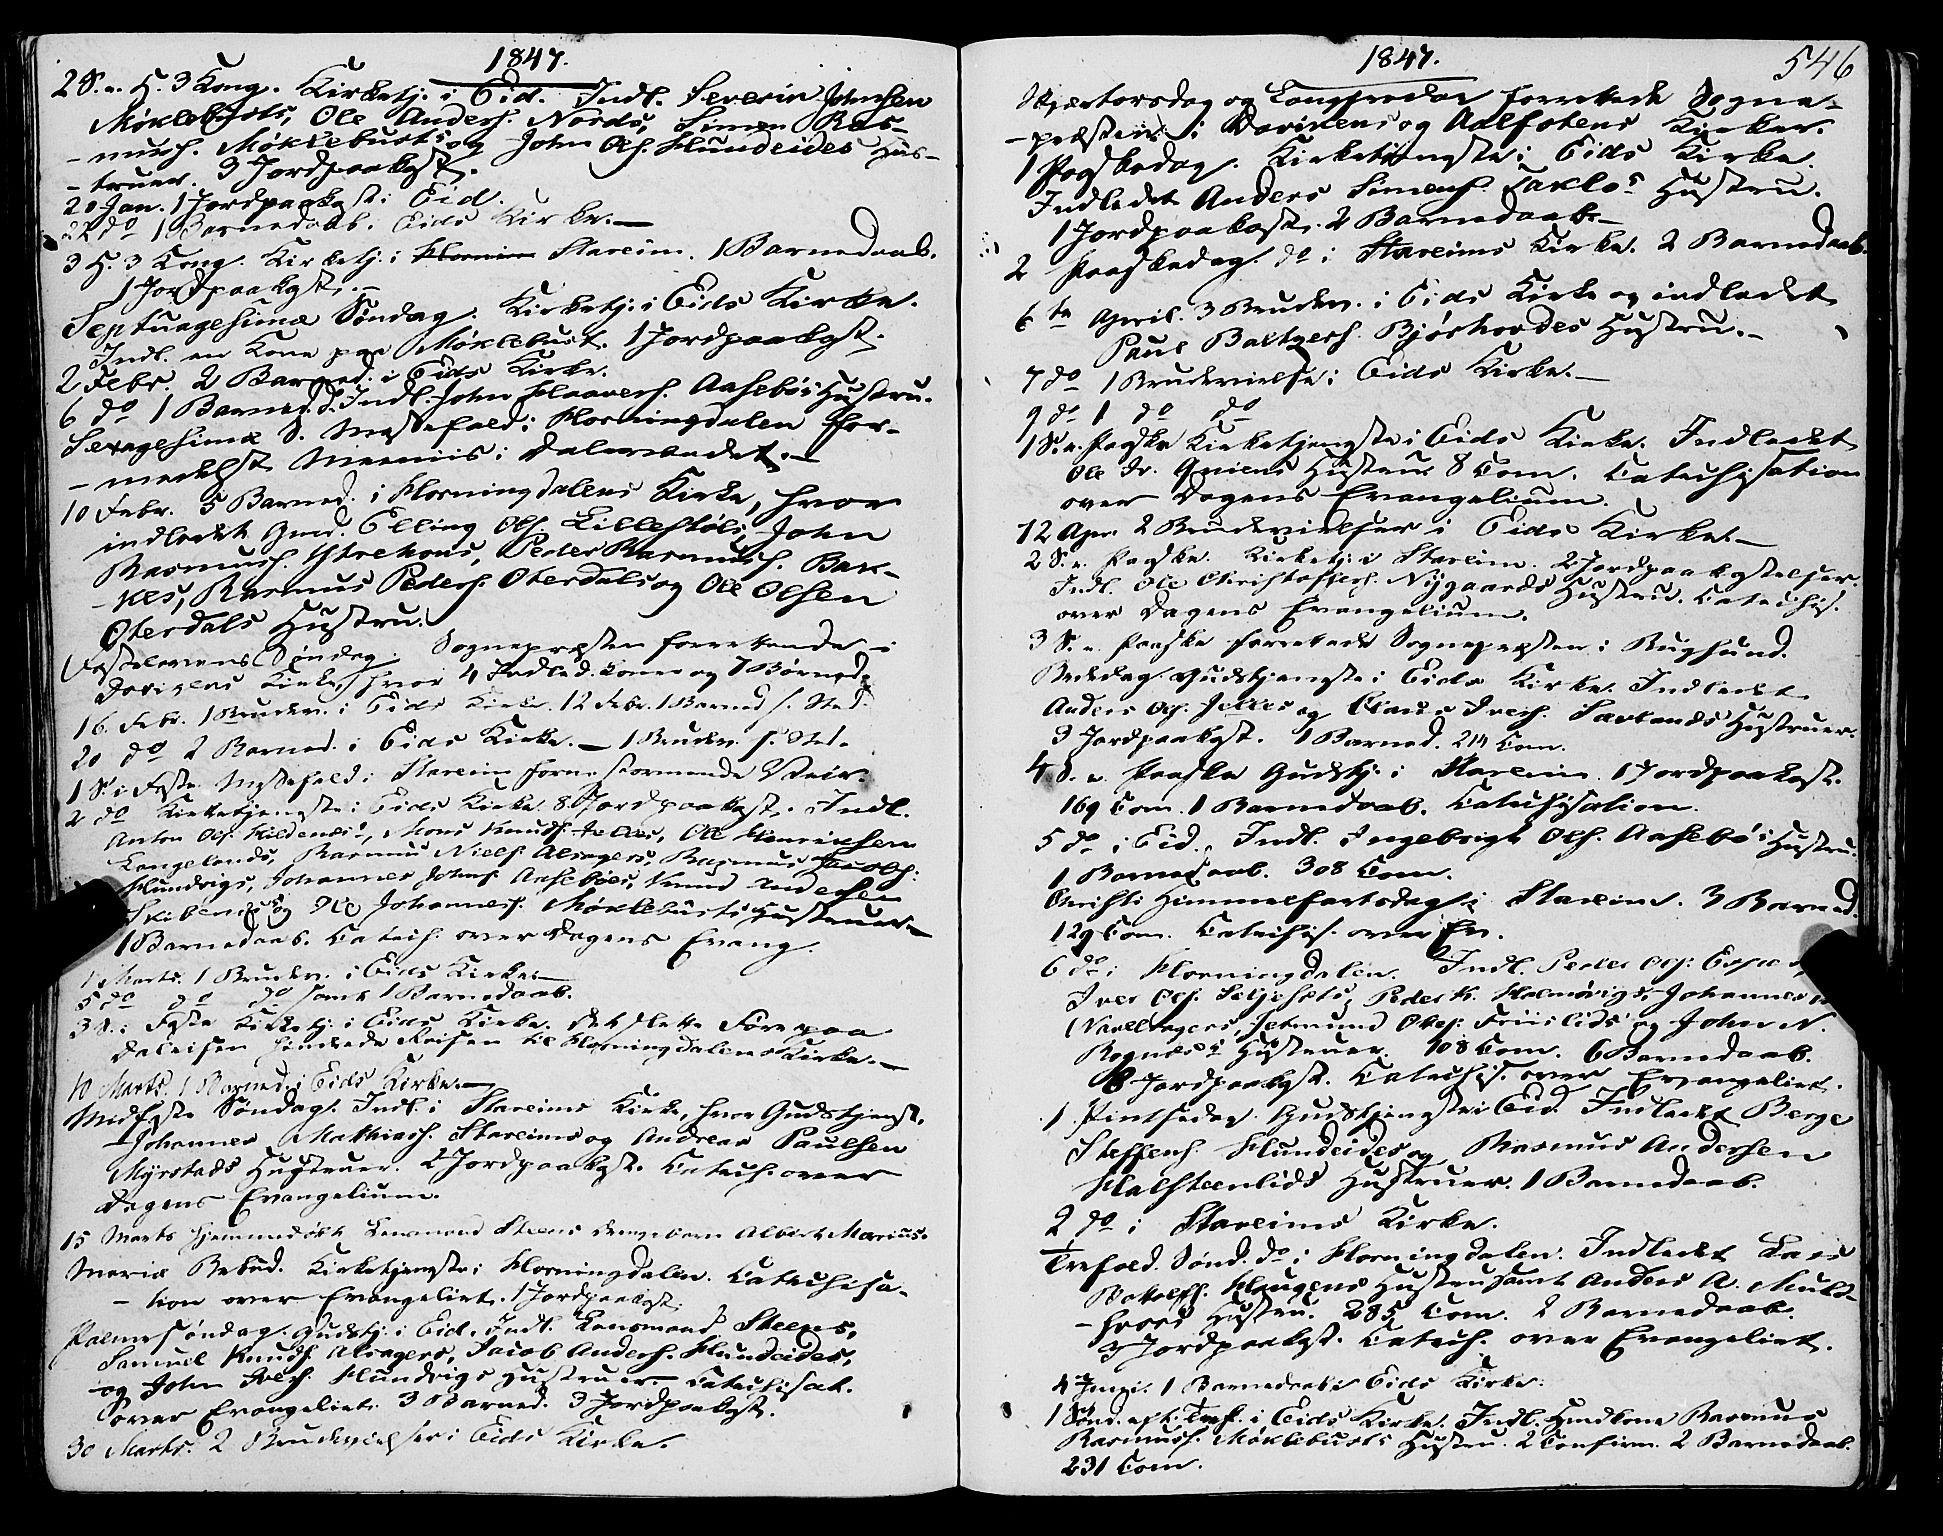 1847.
2 S. e. H. 3 Kong. Kirketj. i Eid. Indl. Severin Johnsen
Møklebusts, Ole Anders. Nords, Simen Ras-
-mus. Møklebusts og John Ols. Hundeides Hus-
-truer. 3 Jordpaakast.
20 Jan. 1 Jordpaakast i Eid.
22 do 1 Barnedaab i Eids Kirke.—
3 H. 3 Kong. Kirketj. i Stareim. 1 Barnedaab.
1 Jordpaakast.—
Septuagesima Søndag. Kirketj. i Eids Kirke.
Indl. en Kone paa Møklebust. 1 Jordpaakast.
2 Febr. 2 Barned. i Eids Kirke.
6 do 1 Barned. Indl. John Haavers. Aasebøs Hustru.
Sexagesima S. Messefald i Horningdalen for-
-medelst
10 Febr. 5 Barned. i Horningdalens Kirke, hvor
indledet Gmd. Elling Ols. Lillestøls, John
Rasmus. Ytrehons, Peder Rasmus. Bak-
-kes, Rasmus Peders. Oterdals og Ole Olsen
Oterdals Hustru.
Fastelavens Søndag. Sognepræsten forrettende i
Davigens Kirke, hvor 4 Indled. Koner og 7 Børned.
16 Febr. 1 Brudev. i Eids Kirke. 12 Febr. 1 Barned. s. Sted.
20 do 2 Barned. i Eids Kirke.— 1 Brudev. s. Sted.
1 S. i Faste Messefald i Stareim formedelst Veir.
2 do Kirketjeneste i Eids Kirke. 8 Jordpaakast. Indl.
Anton Ols. Hildenes, Mons Knuds. Jelles, Ole Henriksen
Langelands, Rasmus Niels. Alsagers, Rasmus Jacobs.
Hundvigs, Johannes Johns. Aasebøes, Knud Andersen
Skibenes og Ole Johannes. Møklebusts Hustruer.—
1 Barnedaab. Catech. over Dagens Evang.
Marts. 1 Brudev. i Eids Kirke.—
5 do do do samt 1 Barnedaab.
3 S. i Faste Kirketj. i Eids Kirke. Det slette Føre paa
hindrede Reisen til Horningdalens Kirke.—
10 Marts. 1 Barned. i Eids Kirke.—
Midfaste Søndag. Indl. i Stareims Kirke, hvor Gudstjenst.
Johannes Mathias. Stareims og Andreas Paulsen
Myrstads Hustruer. 2 Jordpaakast. Catech. over
Dagens Evangelium.
15 Marts hjemmedøbt Lensmand Steens Drengebarn Albert Marius.
Mariæ Bebud. Kirketjeneste i Horningdalen. Catechisa-
-tion over Evangeliet. 1 Jordpaakast.
Palmesøndag. Gudstj. i Eid. Indl. Lensmand Steens,
Samuel Knuds. Alsagers, Jacob Anders. Hundeides,
og John Ivers. Hundvigs Hustruer.— Catechisat.
over Evangeliet. 3 Barned. 3 Jordpaakast.
30 Marts. 2 Brudevielser i Eids Kirke.
1847.
546
Skjærtorsdag og Langfredag forrettede Sogne-
-præsten i Davigens og Aalfotens Kirker.
1 Paaskedag. Kirketjeneste i Eids Kirke.
Indledet Anders Simens. Hustru.
1 Jordpaakast. 2 Barnedaab.—
2 Paaskedag. do i Stareims Kirke. 2 Barnedaab.
6te April. 3 Brudev. i Eids Kirke og indledet
Paul Baltzers. Bjørhovdes Hustru.—
7 do 1 Brudevielse i Eids Kirke.—
9 do 1 do do
1 S. e. Paaske Kirketjeneste i Eids Kirke. Indledet
Ole Hustru 8 Com. Catechisation
over Dagens Evangelium.
12 Apr. 2 Brudevielser i Eids Kirke.—
2 S. e. Paaske. Kirketj. i Stareim. 2 Jordpaakastelser.
Indl. Ole Christoffers. Nygaards Hustru. Catechis.
over Dagens Evangelium.
3 S. e. Paaske forrettede Sognepræsten i Rugsund.
Bededag. Gudstjeneste i Eids Kirke. Indledet
Anders Ols. Jelles og Claus Ivers. Hustruer.
3 Jordpaakast. 1 Barned. 214 Com.
4 S. e. Paaske Gudstj. i Stareim. 1 Jordpaakast.
169 Com. 1 Barnedaab. Catechisation.
5 do i Eid. Indl. Ingebrigt Ols. Aasebøs Hustru.
1 Barnedaab. 308 Com.
Christi Himmelfartsdag i Stareim. 3 Barned.
129 Com. Catechis. over Ev.
6 do i Horningdalen. Indl. Peder Ols.
Iver Ols. Seljesets, Peder K. Holmøvigs, Johannes
Navelsagers, Jetmund Friislids og John N.
Rognes's Hustruer. 108 Com. 6 Barnedaab.
8 Jordpaakast. Catechis. over Evangeliet.
1 Pintsedag. Gudstjeneste i Eid. Indledet Berge
Steffens. Hundeides og Rasmus Andersen
Halsteenlids Hustruer. 1 Barnedaab.
2 do i Stareims Kirke.
Trefold. Sønd. do i Horningdalen. Indledet Lars
Haugens Hustru samt Anders A. Muld-
-svors Hustru. 285 Com. 2 Barnedaab.
3 Jordpaakast. Catech. over Evangeliet.
4 Juni. 1 Barnedaab i Eids Kirke.
1 Sønd. eft. Tref. i Eids Kirke. Indl. Rasmus
Rasmus. Møklebusts Hustru. 2 Confirm. 2 Barnedaab.
231 Com.